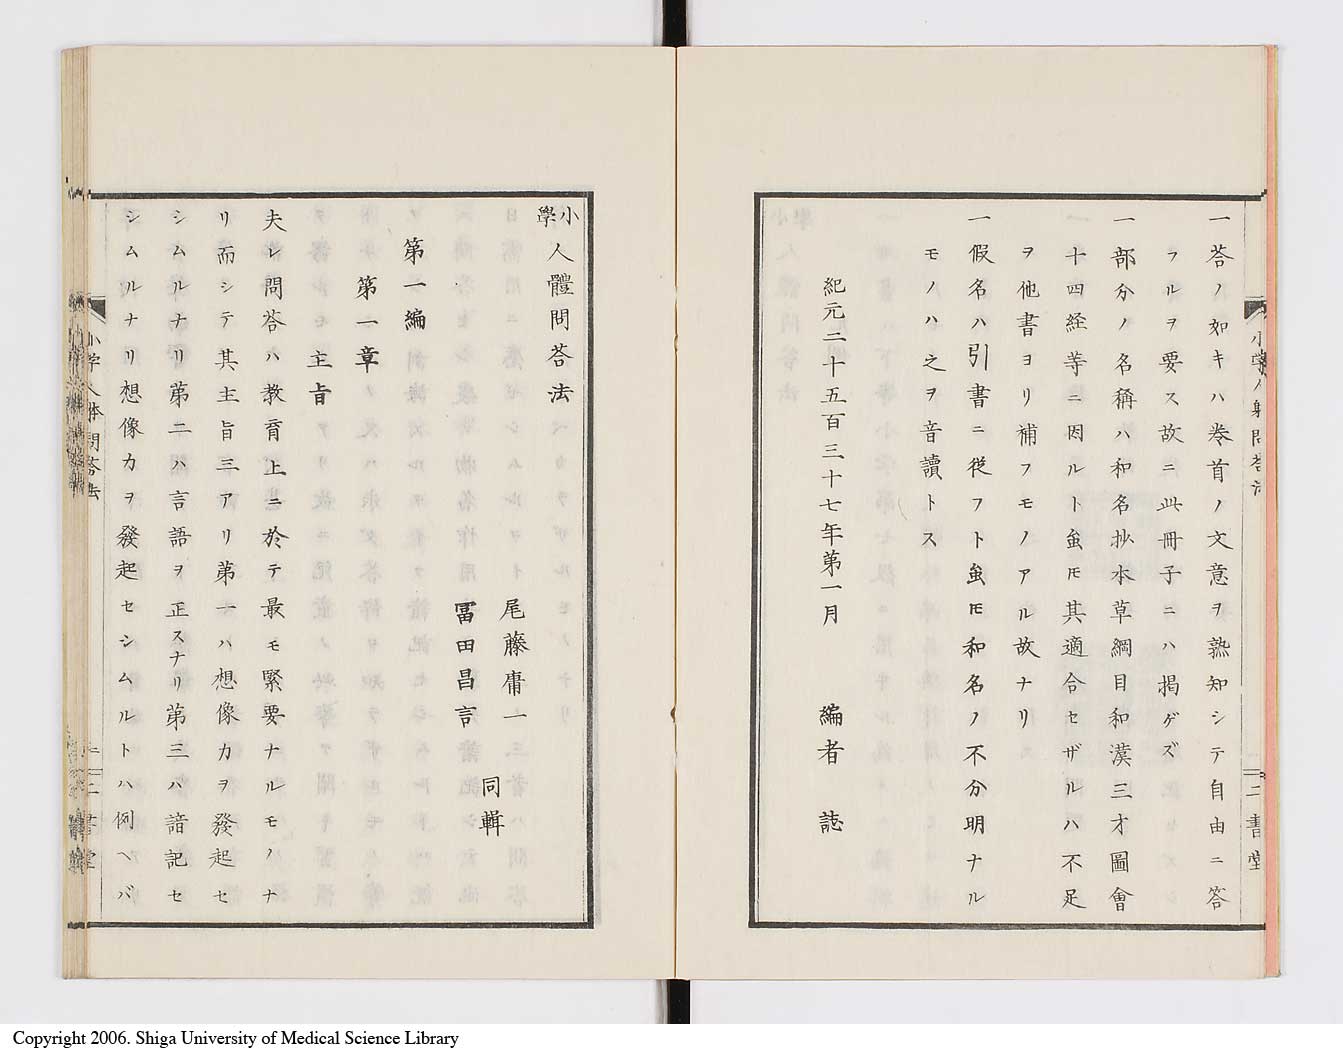 一答ノ如キハ巻首ノ文意ヲ熟知シテ自由ニ答
フルヲ要ス故ニ此冊子ニハ掲ゲズ
一部分ノ名稱ハ和名抄本草綱目和漢三才圖會
十四経等ニ因ルト虽𪜈其適合セザルハ不足
ヲ他書ヨリ補フモノアル故ナリ
一假名ハ引書ニ從フト虽𪜈和名ノ不分明ナル
モノハ之ヲ音讀トス
紀元二十五百三十七年第一月 編者 誌
小學人體問荅法
尾藤庸一
冨田昌言
同輯
第一編
第一章
主旨
夫レ問荅ハ教育上ニ於テ最モ緊要ナルモノナ
リ而シテ其主旨三アリ第一ハ想像力ヲ發起セ
シムルナリ第二ハ言語ヲ正スナリ第三ハ諳記セ
シムルナリ想像力ヲ發起セシムルトハ例ヘバ
小学人体問荅法
二書堂
Copyright 2006. Shiga University of Medical Science Library